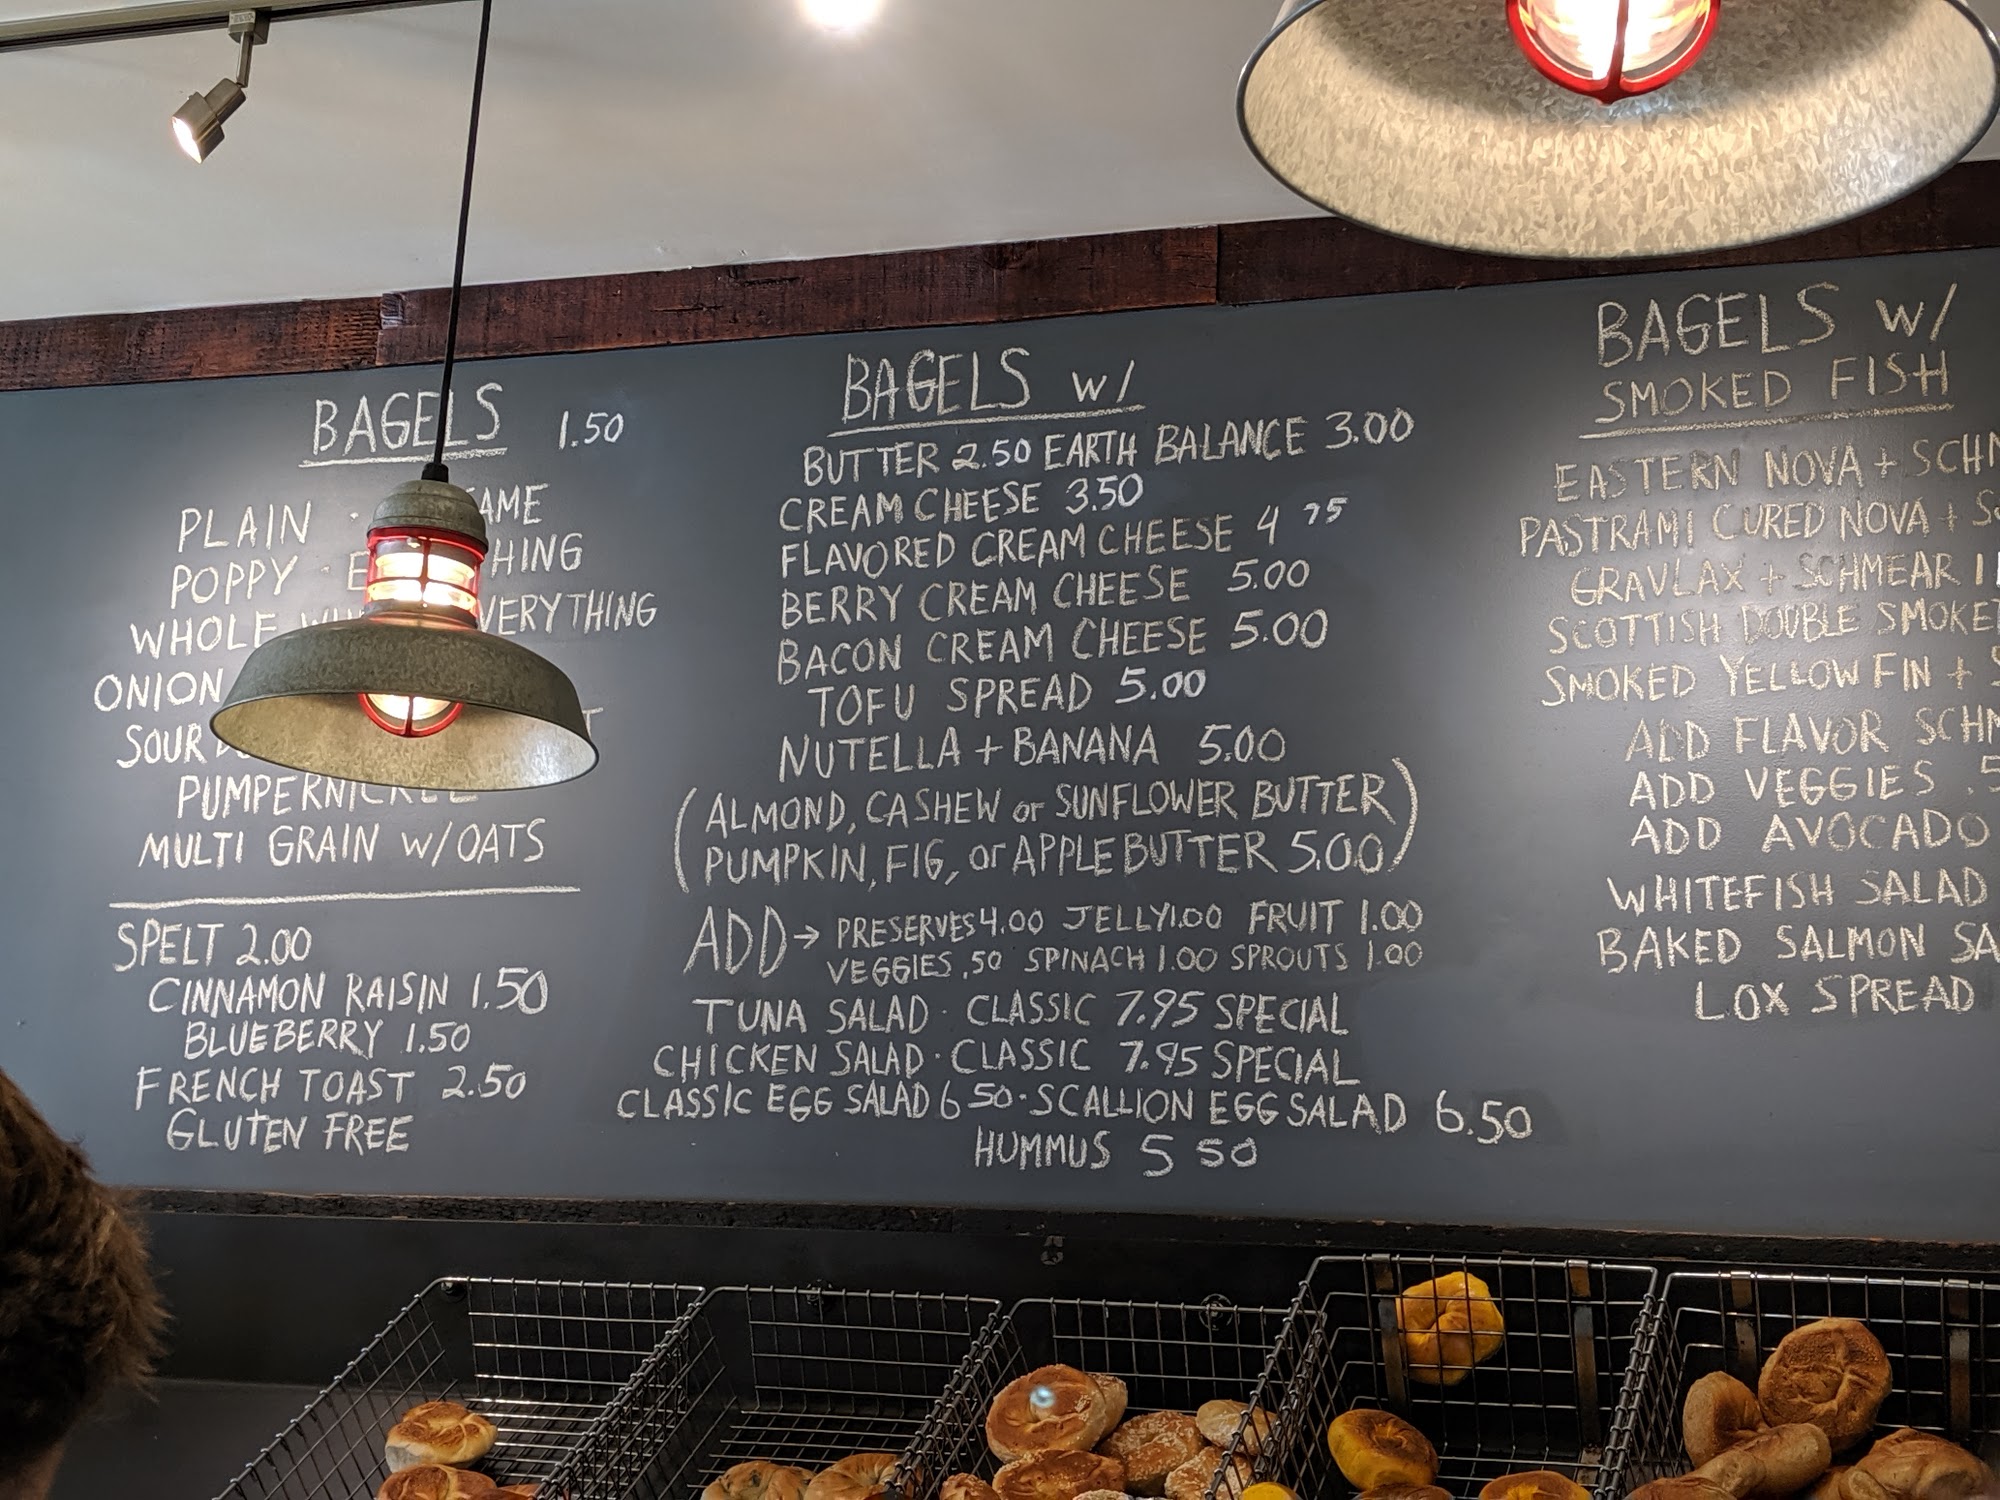 BAGELS 1.50
PLAIN ·
POPPY ·
WHOLE EVERYTHING
ONION
SOUR
PUMPERNICKEL
MULTI GRAIN W/OATS
SPELT 2.00
CINNAMON RAISIN 1.50
BLUEBERRY 1.50
FRENCH TOAST 2.50
GLUTEN FREE
BAGELS w/
BUTTER 2.50 EARTH BALANCE 3.00
CREAM CHEESE 3.50
FLAVORED CREAM CHEESE 4 75
BERRY CREAM CHEESE 5.00
BACON CREAM CHEESE 5.00
TOFU SPREAD 5.00
NUTELLA + BANANA 5.00
(ALMOND, CASHEW or SUNFLOWER BUTTER
PUMPKIN, FIG, or APPLE BUTTER 5.00)
ADD → PRESERVES 4.00 JELLY 1.00 FRUIT 1.00
VEGGIES .50 SPINACH 1.00 SPROUTS 1.00
TUNA SALAD · CLASSIC 7.95 SPECIAL
CHICKEN SALAD · CLASSIC 7.95 SPECIAL
CLASSIC EGG SALAD 6 50 · SCALLION EGG SALAD 6.50
HUMMUS 5 50
BAGELS w/
SMOKED FISH
EASTERN NOVA +
PASTRAMI CURED NOVA +
GRAVLAX + SCHMEAR
SCOTTISH DOUBLE SMOKED
SMOKED YELLOW FIN +
ADD FLAVOR
ADD VEGGIES
ADD AVOCADO
WHITEFISH SALAD
BAKED SALMON
LOX SPREAD